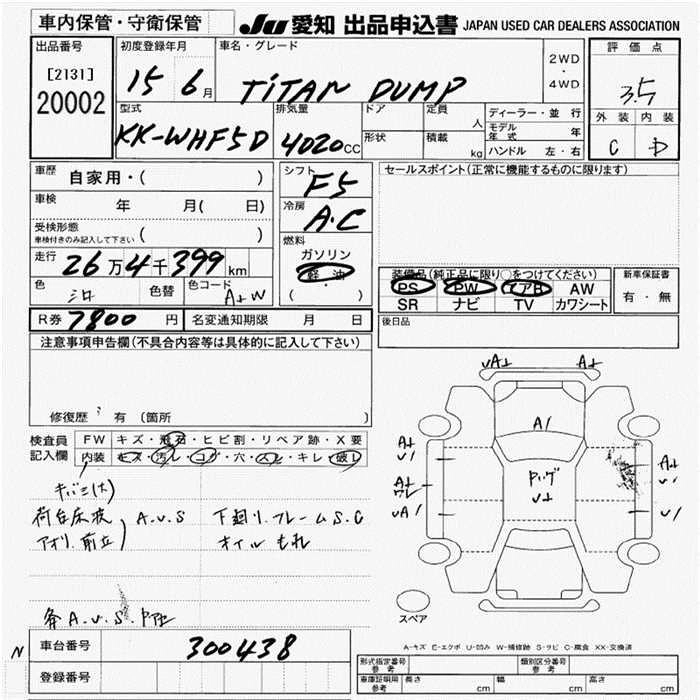 車内保管・守衛保管
JU 愛知 出品申込書 JAPAN USED CAR DEALERS ASSOCIATION
出品番号
[2131]
20002
初度登録年月
15 6月
車名・グレード
TITAN DUMP
2WD
・
4WD
評価点
3.5
外装 内装
C D
型式
KK-WHF5D
排気量
4020cc
ドア
形状
定員 人
積載 kg
ディーラー・並行
モデル年式 年
ハンドル 左・右
車歴
自家用・( )
車検
年 月( 日)
受検形態
車検付きのみ記入して下さい
走行
26万4千399km
色
シロ
色替
色コード
A+W
シフト
F5
冷房
A.C
燃料
ガソリン
軽油
(・ )
セールスポイント(正常に機能するものに限ります)
装備品(純正品に限り○をつけてください)
PS PW エアB AW
SR ナビ TV カワシート
新車保証書
有・無
R券 7800円
名変通知期限 月 日
後日品
注意事項申告欄(不具合内容等は具体的に記入して下さい)
修復歴 有(箇所 )
検査員
記入欄
FW キズ・飛石・ヒビ割・リペア跡・X要
内装 キズ・汚レ・コゲ・穴・スレ・キレ・破レ
キバミ(大)
荷台床波
アオリ.前立
A.U.S
下廻り.フレームS.C
オイルもれ
各A.U.S.
UA+ A+
A1
A+
U1
A+
UA1
U+
A+
U1
U1
スペア
A-キズ E-エクボ U-凹み W-補修跡 S-サビ C-腐食 XX-交換済
N
車台番号
300438
登録番号
形式指定番号
参考
類別区分番号
参考
車庫証明用
参考
長さ cm
幅 cm
高さ cm